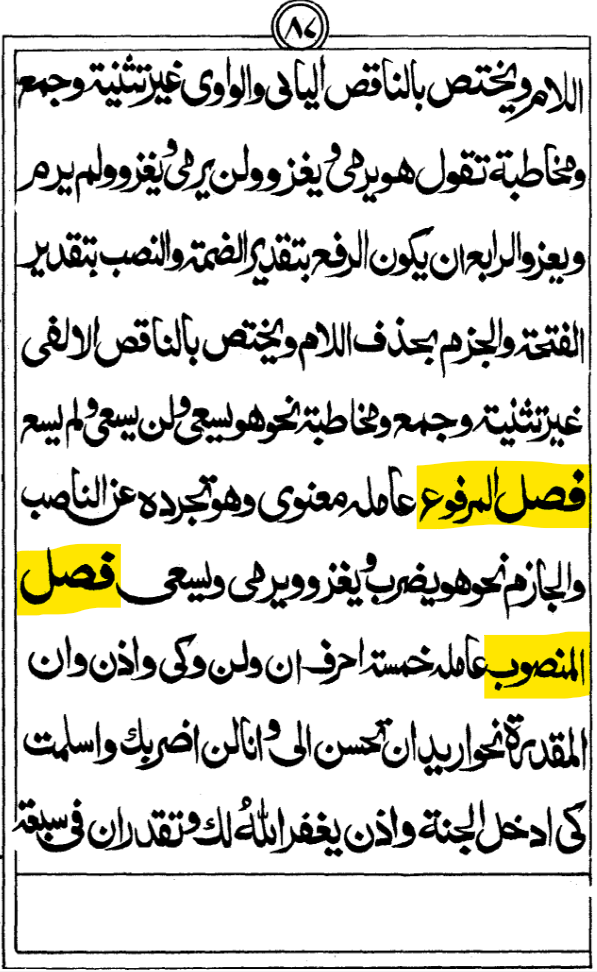 ٨٤
اللام ويختص بالناقص اليائى والواوى غير تثنية وجمع
ومخاطبة تقول هو يرمى ويغزو ولن يرمى ويغزو ولم يرم
ويعز والرابع ان يكون الرفع بتقدير الضمة والنصب بتقدير
الفتحة والجزم بحذف اللام ويختص بالناقص الالفى
غير تثنية وجمع ومخاطبة نحو هو يسعى ولن يسعى ولم يسع
فصل المرفوع عامله معنوى وهو تجرده عن الناصب
والجازم نحو هو يضرب ويغزو ويرمى ويسعى فصل
المنصوب عامله خمسة احرف ان ولن وكى واذن وان
المقدرة نحو اريد ان تحسن الى وانا لن اضربك واسلمت
كى ادخل الجنة واذن يغفر اللهُ لك وتقدر ان فى سبعة